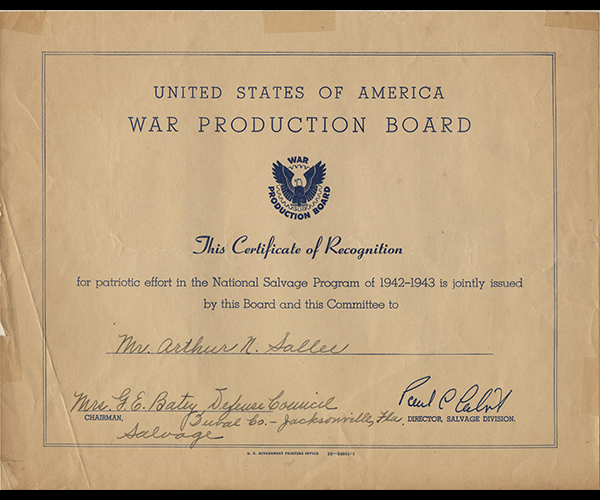 UNITED STATES OF AMERICA
WAR PRODUCTION BOARD
WAR
PRODUCTION BOARD
This Certificate of Recognition
for patriotic effort in the National Salvage Program of 1942–1943 is jointly issued
by this Board and this Committee to
Mr. Arthur N. Sallee
Mrs. G. E. Baty, Defense Council
Paul C
CHAIRMAN, Duval Co. - Jacksonville, Fla. DIRECTOR, SALVAGE DIVISION.
Salvage
U. S. GOVERNMENT PRINTING OFFICE